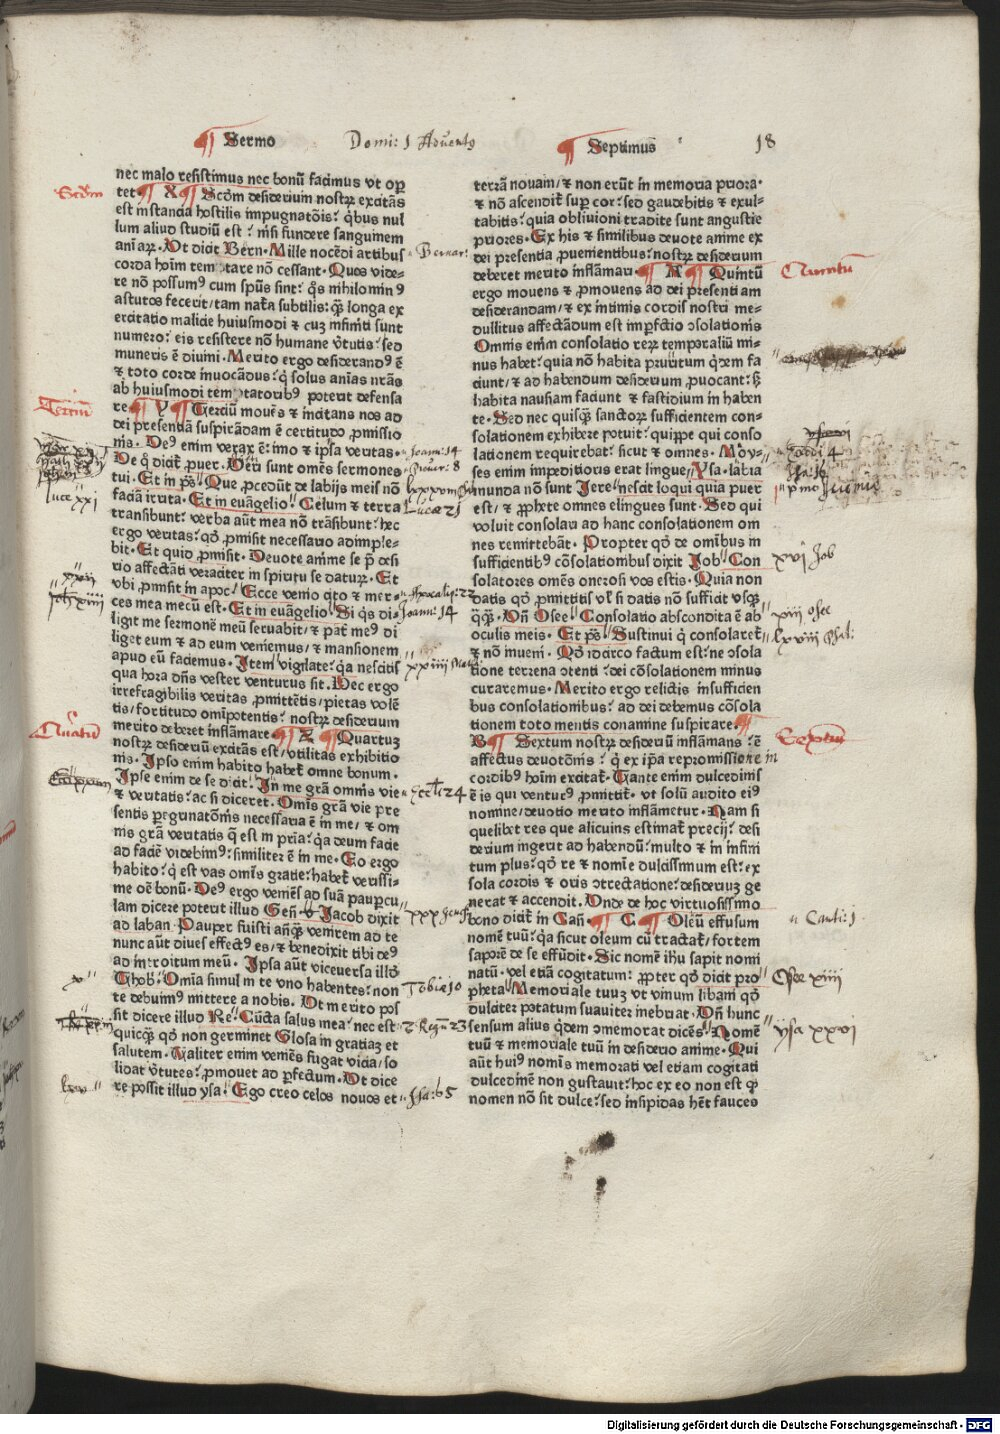 Sermo
Domi: 1 Adventus
Septimus
18
nec malo resistimus nec bonū facimus vt opꝫ
tet ¶ X ¶ Scd̄m desiderium nostrꝝ excitās
est instancia hostilis impugnatōis: qͥbus nul
lum aliud studiū est: nisi fundere sanguinem
aniarꝝ. Ut dicit Bern. Mille nocēdi artibus
corda hoīm temptare nō cessant. Quos vide-
re nō possumꝰ cum spūs sint: qͦs nihilominꝰ
astutos fecerit/tam nat̄a subtilis: qͣꝫ longa ex
ercitatio malicie huiusmodi ⁊ cuꝫ infiniti sunt
numero: eis resistere nō humane v̄tutis: sed
muneris ē diuini. Merito ergo desiderandꝰ ē
⁊ toto corde inuocādus: qͥ solus anīas nrās
ab huiusmodi temptatoribꝰ poterit defensa
re ¶ Y ¶ Terciū mouēs ⁊ incitans nos ad
dei presentiā suspirādam ē certitudo ꝓmissio
nis. Deꝰ enim verax ē: imo ⁊ ipsa veritas.
De qͦ dicit̄ ꝓuer. Veri sunt omēs sermones
tui. Et in ps̄. Que ꝓcedūt de labijs meis nō
faciā irrita. Et in euāgelio. Celum ⁊ terra
transibunt: verba aūt mea nō trāsibunt: hec
ergo veritas: qͦ ꝓmisit necessario adimple-
bit. Et quid ꝓmisit. Deuote anime se p̄ desi
rio affectāti veraciter in spiritu se daturꝝ. Et
vbi ꝓmisit in apoc. Ecce venio cito ⁊ mer-
ces mea mecū est. Et in euāgelio. Si qͥs di-
ligit me sermonē meū seruabit/⁊ pat̄ meꝰ di
liget eum ⁊ ad eum veniemus/⁊ mansionem
apud eū faciemus. Item vigilate: qͥa nescitis
qua hora dn̄s vester venturus sit. Hec ergo
irrefragibilis veritas ꝓmittētis/pietas volē
tis/fortitudo omīpotentis: nostrꝝ desiderium
merito deberet inflāmare ¶ Z ¶ Quartuꝫ
nostrꝝ desideriū excitās est/vtilitas exhibitio
nis. Ipso enim habito habet̄ omne bonum.
Ipse enim de se dicit. In me grā omnis vie
⁊ veritatis: ac si diceret. Omīs grā vie pre
sentis pegrinatōnis necessaria ē in me/⁊ om
nis grā veritatis q̄ est in pria: qͥa deum facie
ad faciē videbimꝰ: similiter ē in me. Eo ergo
habito: qͥ est vas omīs gratie: habet̄ verissi-
me oē bonū. Deꝰ ergo veniēs ad suā paupcu
lam dicere poterit illud Gen̄. Jacob dixit
ad laban. Pauper fuisti anqͣꝫ venirem ad te
nunc aūt diues effectꝰ es/⁊ benedixit tibi deꝰ
ad introitum meū. Ipsa aūt viceuersa illō
Thob. Omīa simul in te vno habentes: non
te debuimꝰ mittere a nobis. Ut merito pos
sit dicere illud Re. Cūcta salus mea: nec est
quicqͣꝫ qͦ non germinet Glosa in gratiaꝫ et
salutem. Taliter enim veniēs fugat vicia/so
lidat v̄tutes: ꝓmouet ad ꝑfectum. Ut dice
re possit illud ysa. Ego creo celos nouos et
terrā nouam/⁊ non erūt in memoria priora.
⁊ nō ascendit̄ supꝑ cor: sed gaudebitis ⁊ exul-
tabitis: quia obliuioni tradite sunt angustie
priores. Ex his ⁊ similibus deuote anime ex
dei presentia ꝓuenientibus: nostrꝝ desiderium
deberet merito inflāmari. ¶ A ¶ Quintū
ergo mouens ⁊ ꝓmouens ad dei presentiam
desiderandam/⁊ ex intimis cordis nostri me-
dullitus affectādum est imꝑfectio ↄsolationis
Omnis enim consolatio rerꝝ temporaliū mi-
nus habet: quia nō habita pruritum qͥdem fa
ciunt/⁊ ad habendum desiderium ꝓuocant: sꝫ
habita nausiam faciunt ⁊ fastidium in haben
te. Sed nec quisqͣꝫ sanctorꝝ sufficientem con-
solationem exhibere potuit: quippe qui conso
lationem requirebat: sicut ⁊ omnes. Moy-
ses enim impeditioris erat lingue/Ysa. labia
munda nō sunt Jere. nescit loqui quia puer
est/⁊ ꝓphete omnes elingues sunt. Sed qui
voluit consolari ad hanc consolationem om
nes remittebāt. Propter qͦ de omībus in
sufficientibꝰ cōsolationibus dixit Job. Con
solatores omēs onerosi vos estis. Quia non
datis qͦ ꝓmittitis vl̄ si datis nō sufficit vsqͣꝫ
qͣqͣꝫ. Vn̄ Osee. Consolatio abscondita ē ab
oculis meis. Et ps̄. Sustinui qͥ consolaret̄
⁊ nō inueni. Qͦ idcirco factum est: ne ↄsola
tione terrena ↄtenti: dei cōsolationem minus
curaremus. Merito ergo relictis insufficien
bus consolationibus: ad dei debemus cōsola
tionem toto mentis conamine suspirare. ¶
B ¶ Sextum nostrꝝ desideriū inflāmans: ē
affectus deuotōnis: qͥ ex ipa repromissione in
cordibꝰ hoīm excitat̄. Tante enim dulcedinis
ē is qui venturꝰ ꝓmittit̄. vt solū audito eiꝰ
nomine/deuotio merito inflāmetur. Nam si
quelibet res que alicuius estimat̄ precij: desi
derium ingerit ad habendū: multo ⁊ in infini
tum plus: qͦ re ⁊ nomīe dulcissimum est: ex
sola cordis ⁊ oris ↄtrectatione: desideriuꝫ ge
nerat ⁊ accendit. Unde de hoc virtuosissimo
bono dicit̄ in Can̄. ¶ C ¶ Oleū effusum
nomē tuū: qͥa sicut oleum cū tractat̄/fortem
saporē de se effūdit. Sic nomē ihu sapit nomi
natū. vel etiā cogitatum: ꝓpter qͦ dicit pro
pheta. Memoriale tuuꝫ vt vinum libani qͦ
dulciter potatum suauiter inebriat. Vn̄ hunc
sensum alius qͥdem ↄmemorat dicēs. Nomē
tuū ⁊ memoriale tuū in desiderio anime. Qui
aūt huiꝰ nomīs memorati vel etiam cogitati
dulcedinē non gustauit: hoc ex eo non est qͥ
nomen nō sit dulce: sed insipidas hēt fauces
Scd̄m
Terciū
luce xxi
Quartū
Bernar:
Joann: 14
Prouer: 8
Luce 21
Apocalip: 22
Joann: 14
xxiiii
Eccli: 24
xxx gen̄
Tobie 10
2 Regū 23
Isa: 65
Quintū
Exodi 4
Isa: 6
p̄mo Jeremie
xvi Job
xiii osee
lxviii psal:
Sextū
Canti: 1
Osee xiiii
ysa xxvi
Digitalisierung gefördert durch die Deutsche Forschungsgemeinschaft - DFG